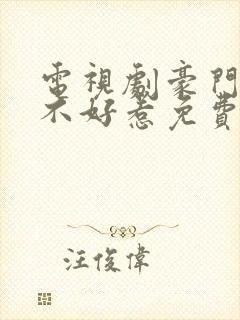 電視劇豪門
不好惹免費
汪俊偉